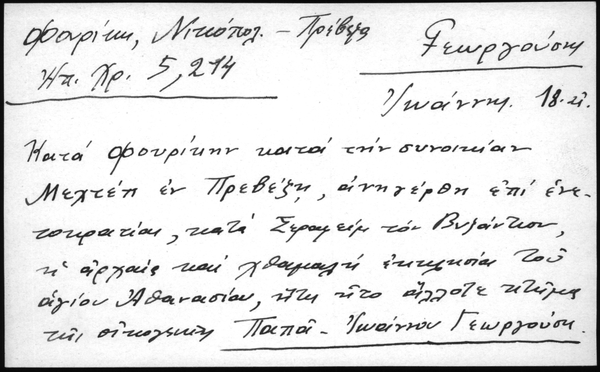 Φουρίκη, Νικόπολ. – Πρέβεζα
Ἠπ. Χρ. 5, 214
Γεωργούσης
Ἰωάννης. 18. αἰ.
Κατά Φουρίκην κατά τήν συνοικίαν
Μεχτέπ ἐν Πρεβέζῃ, ἀνηγέρθη ἐπί ἑνε-
τοκρατίας, κατά Σεραφείμ τόν Βυζάντιον,
ἡ ἀρχαία καί χθαμαλή ἐκκλησία τοῦ
ἁγίου Ἀθανασίου, ἥτις ἦτο ἄλλοτε κτῆμα
τῆς οἰκογενείας Παπᾶ – Ἰωάννου Γεωργούση.